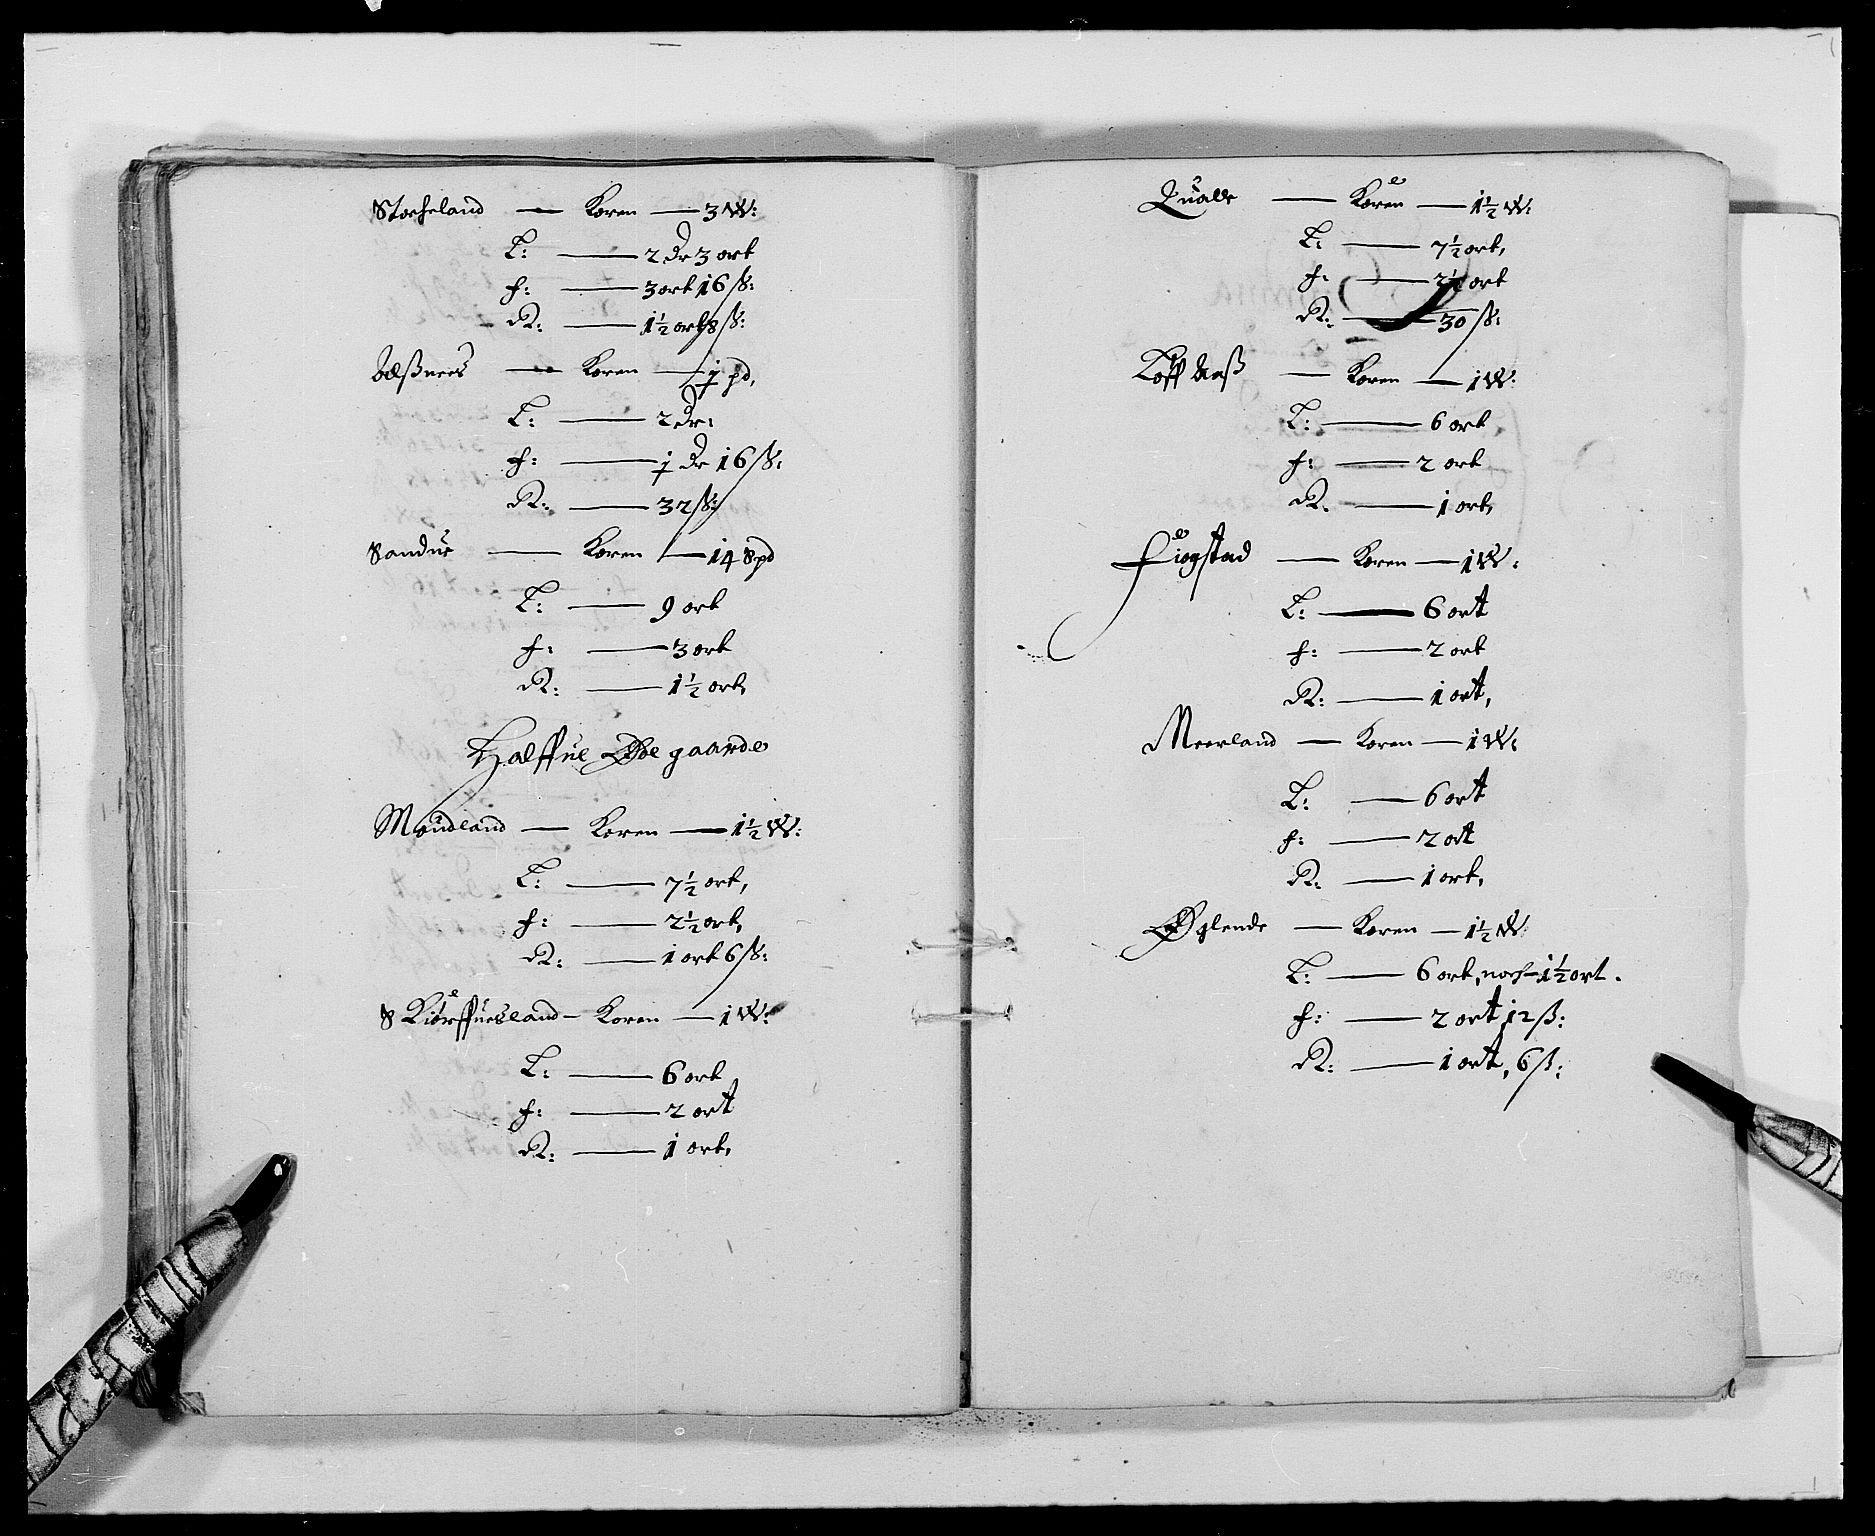 Storheland — Koren — 3 W:
L: — 2 dr 3 ort
f: — 3 ort 16 ß:
R: — 1½ ort 8 ß:
Koren — 1 pd,
L: — 2 dr:
f: — 1 dr 16 ß:
R: — 32 ß:
Sandue — Koren — 14 Spd
L: — 9 ort
f: — 3 ort
R: — 1½ ort,
Halffue Øde gaarde
Maudland — Koren — 1½ W:
L: — 7½ ort,
f: — 2½ ort,
R: — 1 ort 6 ß:
Koren — 1 W:
L: — 6 ort
f: — 2 ort
R: — 1 ort,
Qualle — Koren — 1½ W:
L: — 7½ ort,
f: — 2½ ort
R: — 30 ß:
Koren — 1 W:
L: — 6 ort
f: — 2 ort
R: — 1 ort,
Fiogstad — Koren — 1 W:
L: — 6 ort
f: — 2 ort
R: — 1 ort,
Meerland — Koren — 1 W:
L: — 6 ort
f: — 2 ort
R: — 1 ort,
Øglende — Koren — 1½ W:
L: — 6 ort, noch 1½ ort.
f: — 2 ort, 12 ß:
R: — 1 ort, 6 ß: